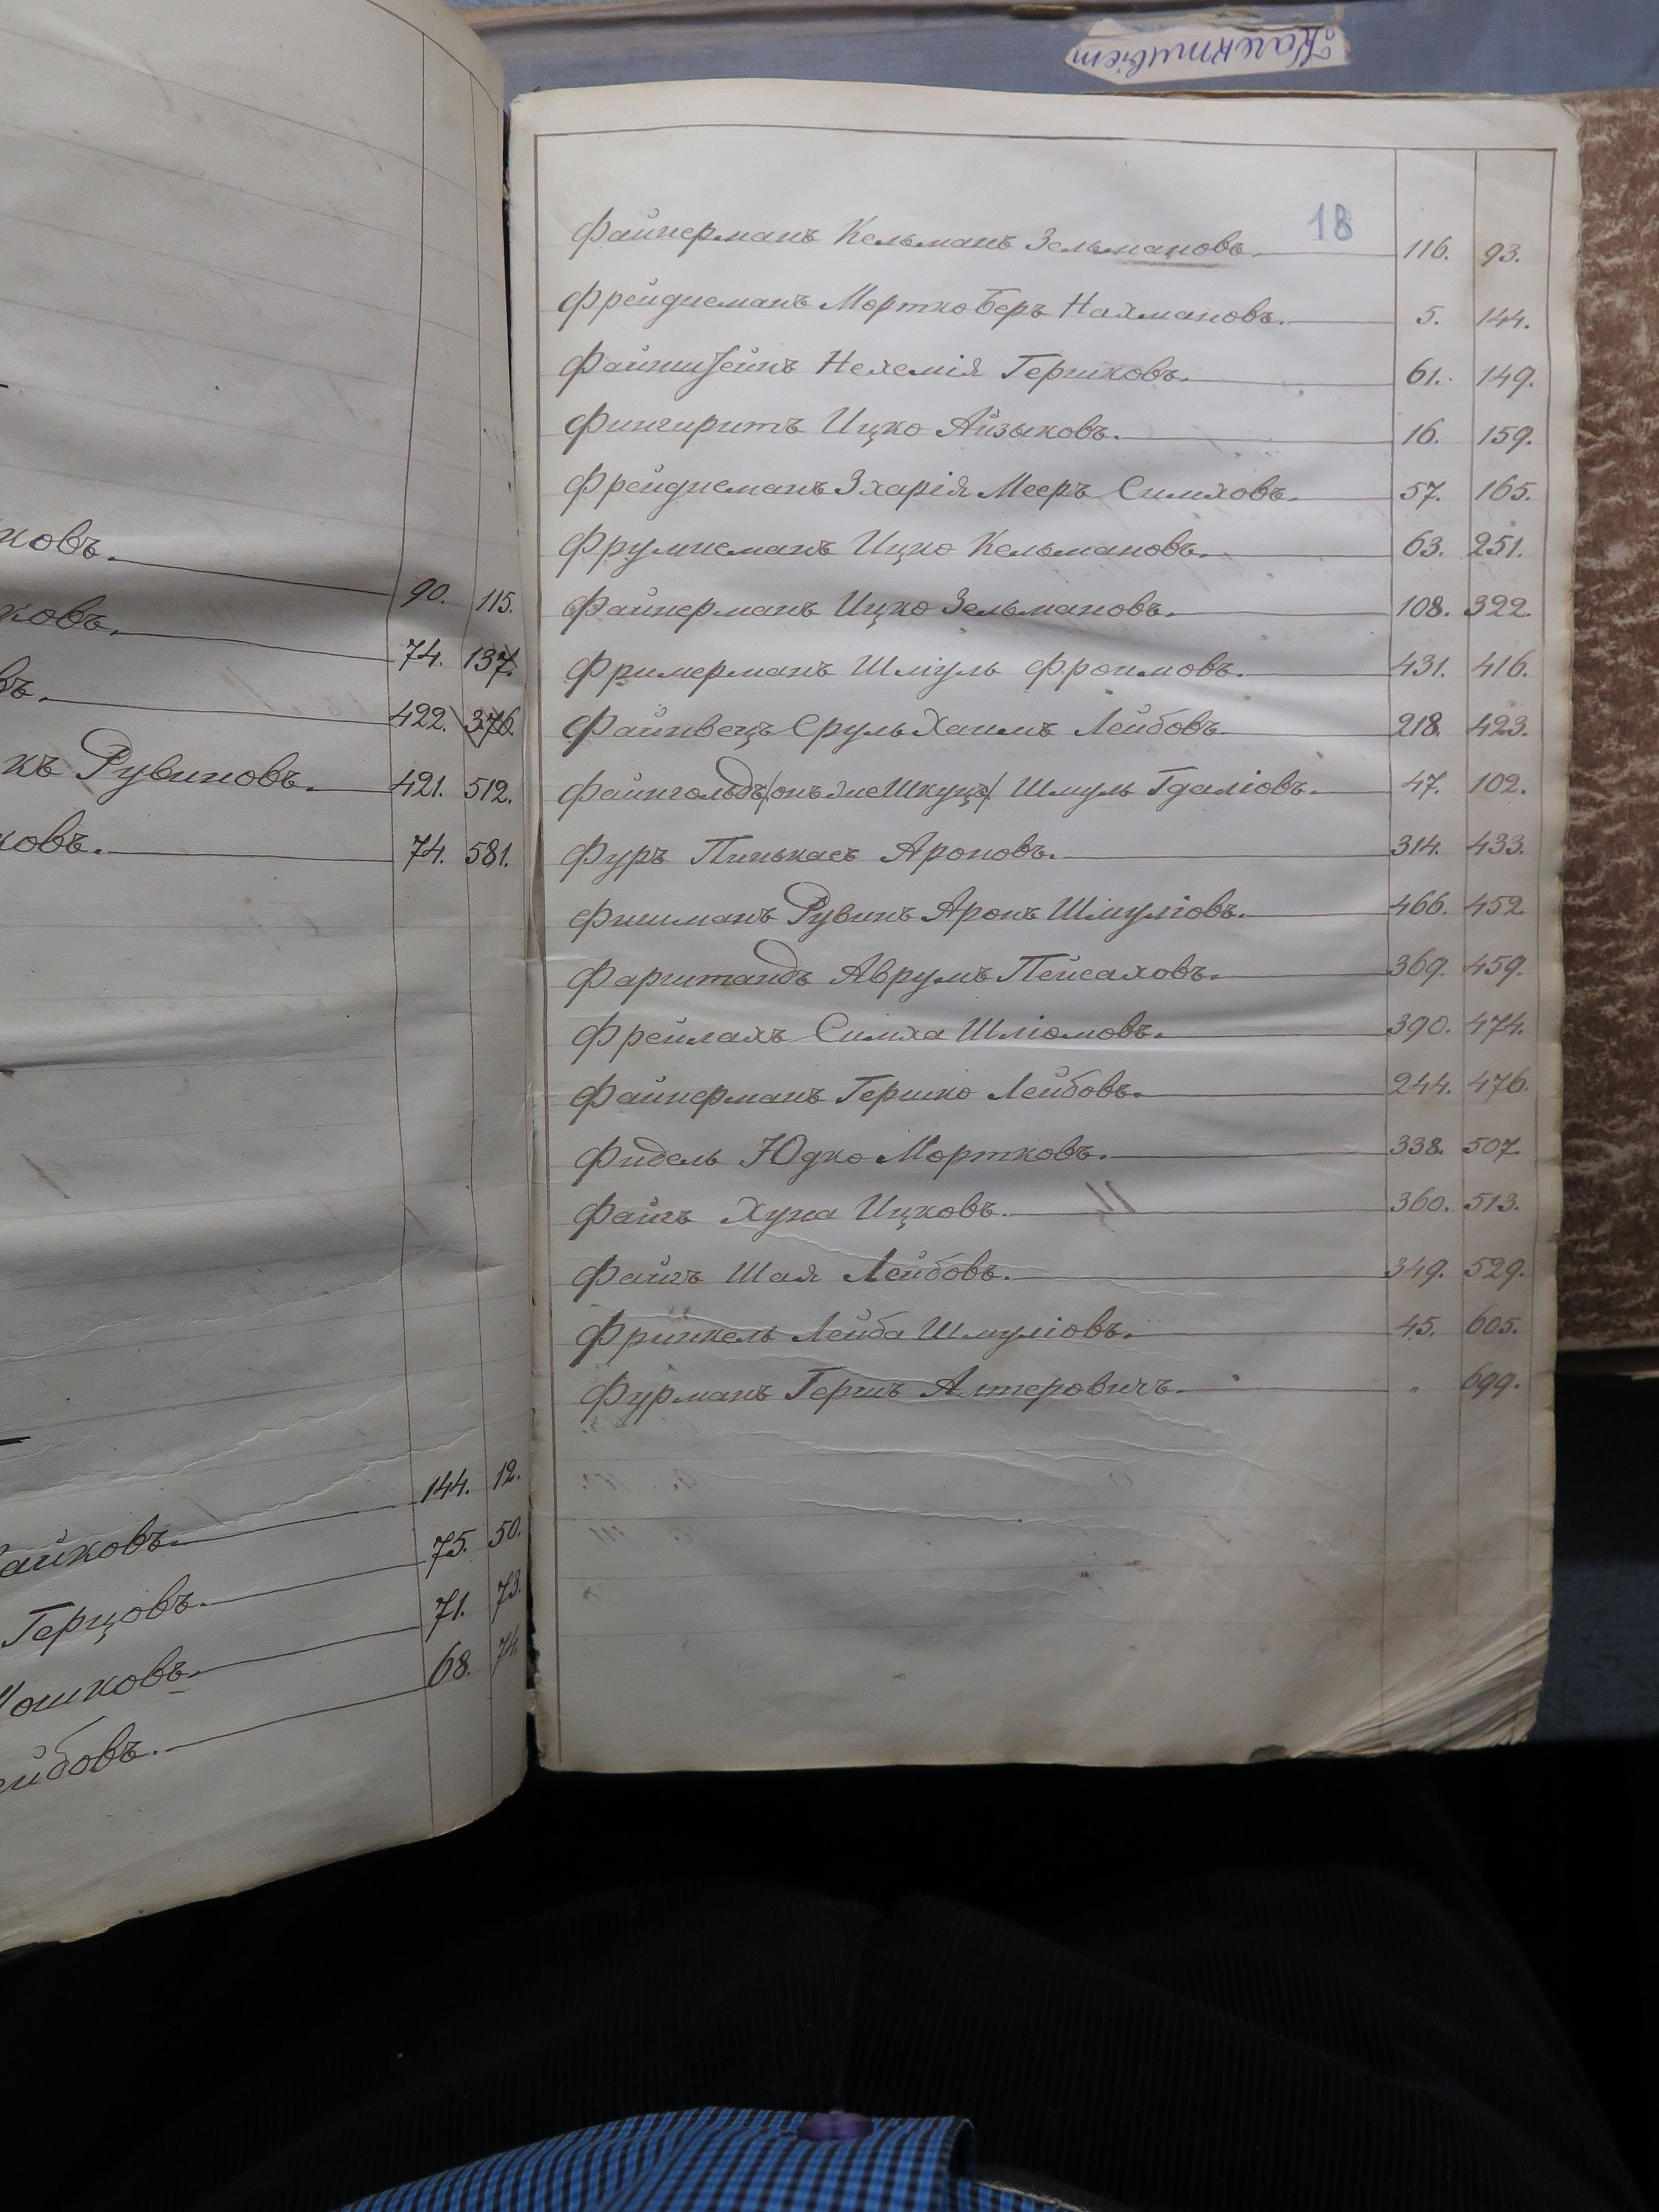 ковъ. 90. 115.
ковъ. 74. 137.
въ. 422. 376.
къ Рувиновъ. 421. 512.
ковъ. 74. 581.
144. 12.
айковъ. 75. 50.
Герцовъ. 71. 73.
Мошковъ. 68. 74.
ейбовъ.
18
Файнерманъ Кельманъ Зельмановъ 116. 93.
Фрейднеманъ Мортко Беръ Нахмановъ. 5. 144.
Файнштейнъ Нехемія Гершковъ. 61. 149.
Фингиритъ Ицко Айзыковъ. 16. 159.
Фрейднеманъ Зхарія Мееръ Симховъ. 57. 165.
Фрумнеманъ Ицко Кельмановъ. 63. 251.
Файнерманъ Ицко Зельмановъ. 108. 322.
Фримерманъ Шмуль Фроимовъ. 431. 416.
Файнвецъ Сруль Хаимъ Лейбовъ 218. 423.
Файнгольдъ /онъ же Шкуцъ/ Шмуль Гдаліовъ. 47. 102.
Фуръ Пинькасъ Ароновъ. 314. 433.
Фишманъ Рувинъ Аронъ Шмуліовъ. 466. 452
Фарштандъ Аврумъ Пейсаховъ. 369. 459.
Фрейлахъ Симха Шліомовъ. 390. 474.
Файнерманъ Гершко Лейбовъ. 244. 476.
Фидель Юдко Мортковъ. 338. 507.
Файгъ Хуна Ицковъ. 360. 513.
Файгъ Шая Лейбовъ. 349. 529.
Фринкель Лейба Шмуліовъ. 45. 605.
Фурманъ Гершъ Алтеровичъ. " 699.